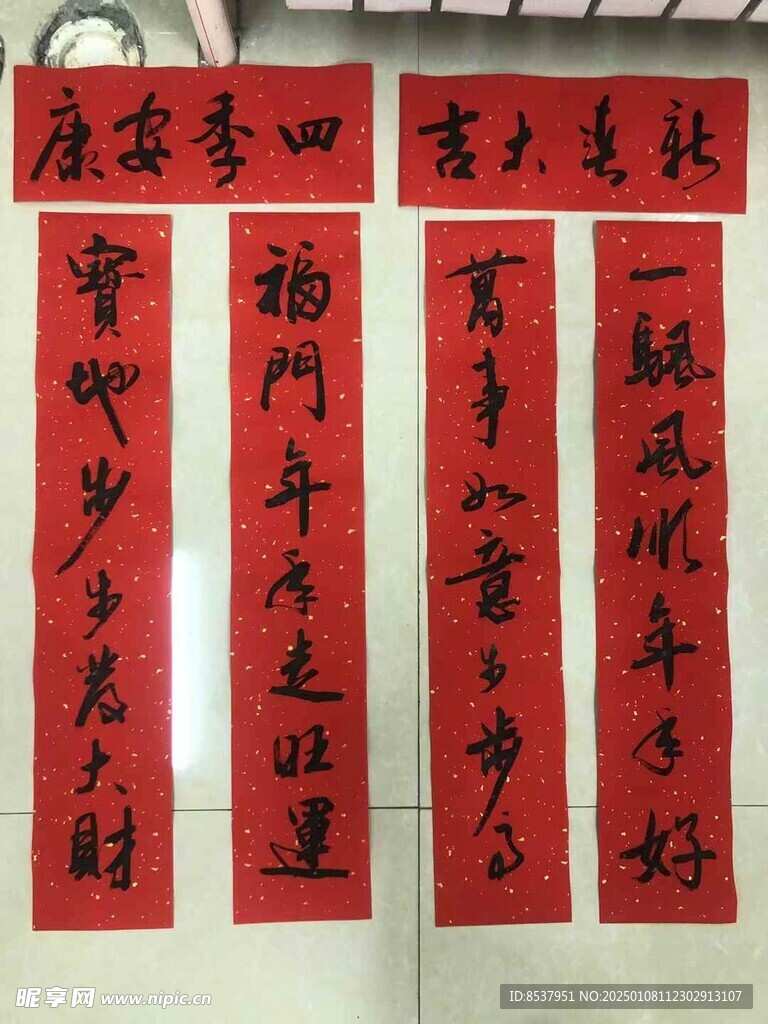 新春大吉
一颿風順年年好
萬事如意步步高
四季安康
福門年年走旺運
寶地步步發大財
昵享网 www.nipic.cn
ID:8537951 NO:20250108112302913107